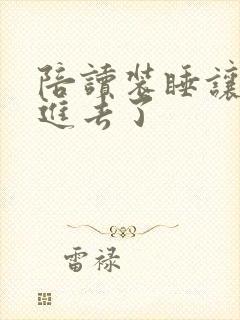 陪讀裝睡讓
進去了
雷禄